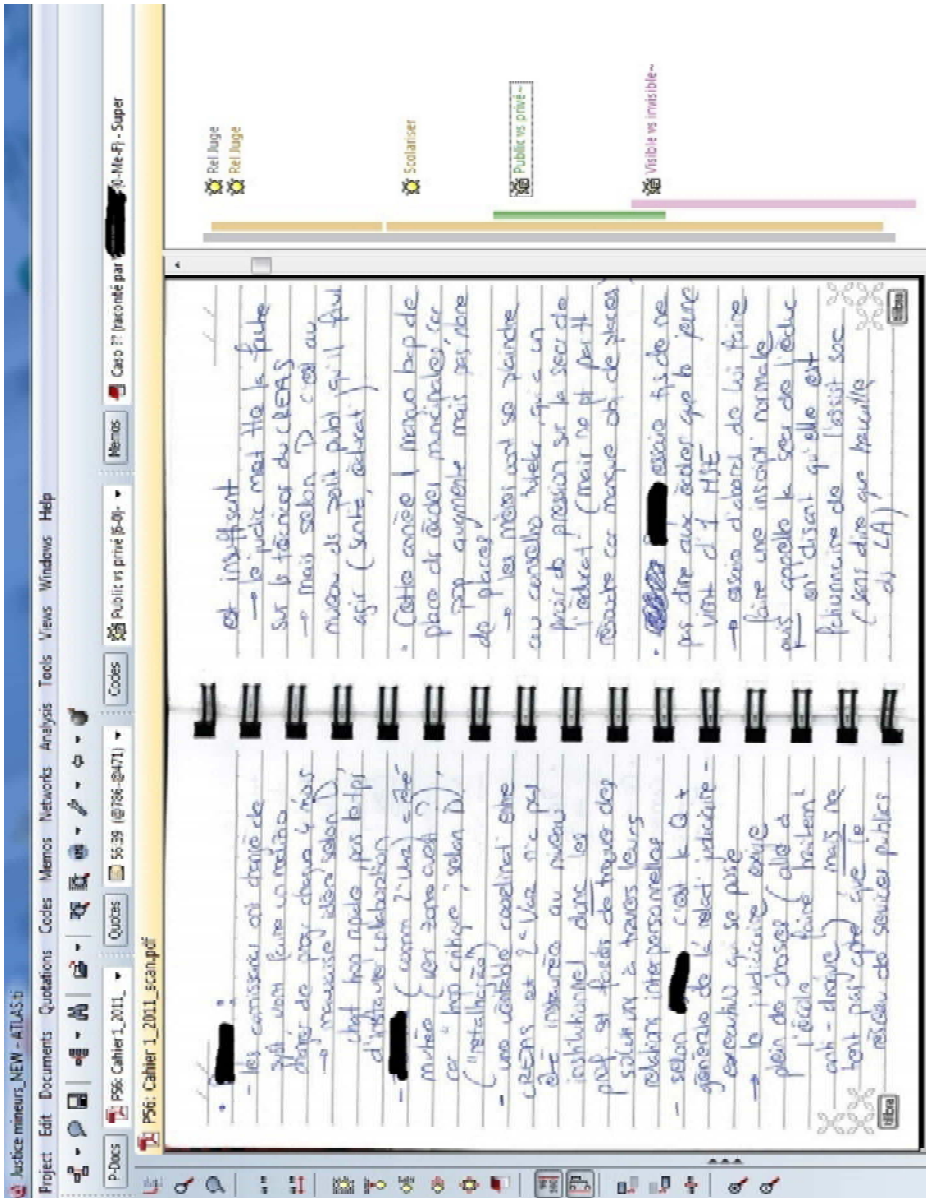 Justice mineurs_NEW - ATLAS.ti
Project Edit Documents Quotations Codes Memos Networks Analysis Tools Views Windows Help
P-Docs P56: Cahier 1_2011_ Quotes 56:39 Codes Public vs privé {6-0}~ Memos Caso ?? (raconté par {0-Me-F} - Super
P56: Cahier 1_2011_scan.pdf
- les comissions ont changé de
changer de prog chaque 4 mois
→ mauvaise idée selon D,
chgt trop rapide, pas le tps
d'instaurer collaboration
car trop critique, selon D,
("retalhação")
- une véritable coordinat entre
CREAS et 2e Vara n'a pu
être instaurée au niveau
institutionnel donc les
prof st forcés de trouver des
solutions à travers leurs
relations interpersonnelles
- selon c'est la Q +
générale de la relat judiciaire-
executivo qui se pose
→ le judiciaire exige
plein de choses (aller à
l'école, faire traitement
anti-drogue) mais ne
tient pas cpte que le
réseau de services publics
tilibra
est insuffisant
→ le judic met tte la faute
sur les técnicos du CREAS
→ mais selon D c'est au
niveau des polit publ qu'il faut
agir (santé, éducat)
- Cette année, manque bcp de
place ds écoles municipales car
pop augmente mais pas nbre
de places
→ les mères vont se plaindre
au conselho tutelar qui a un
peu de pression sur le secr de
l'éducat (mais ne pt pas tt
résoudre car manque obj de places)
- essaie tjs de ne
pas dire aux écoles que le jeune
vient d'1 MSE
→ essaie d'abord de lui faire
faire une inscript normale
puis appelle le secr de l'éduc
en disant qu'elle est
fonctionnaire de l'assist soc
(sans dire que travaille
ds LA)
tilibra
Rel Juge
Rel Juge
Scolariser
Public vs privé~
Visible vs invisible~